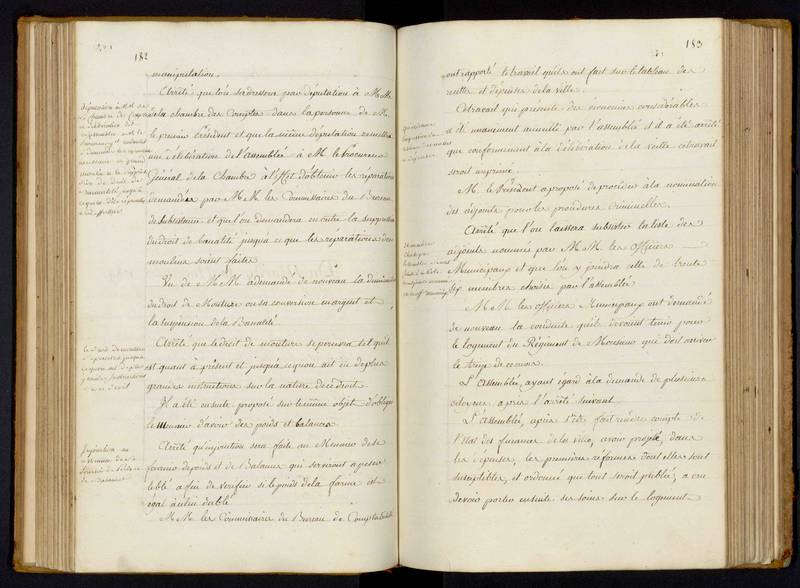 182
manipulation.
Arrêté que l'on s'adressera par députation à M. M.
de la chambre des Comptes dans la personne de M.
le premier Président et que la même députation remettra
une délibération de l'assemblée à M. le Procureur
Général de la Chambre à l'effet d'obtenir les réparations
demandées par M. M. les Commissaires du Bureau
de subsistance et que l'on demandera en outre la suppression
du droit de banalité jusqu'à ce que les réparations des
moulins soient faites.
Un de M. M. a demandé de nouveau la diminution
du droit de Mouture ou sa conversion en argent et
la suspension de la Banalité
Arrêté que le droit de mouture se percevra tel qu'il
est quant à présent et jusqu'à ce qu'on ait eu de plus
grandes instructions sur la nature de ce droit.
Il a été ensuite proposé sur le même objet d'obliger
le Meunier d'avoir des poids et balances.
Arrêté qu'injonction sera faite au Meunier de se
fournir de poids et de Balances qui serviront à peser
le blé a fin de vérifier si le poids de la farine est
égal à celui du blé
M. M. les Commissaires du Bureau de Comptabilité
le droit de mouture
se percevra jusqu'à
ce qu'on ait de plus
grandes instructions
sur ce droit
Injonction au
Meunier de se
fournir de poids et
de Balances
183
ont rapporté le travail qu'ils ont fait sur le tableau des
recettes et dépenses de la ville.
Ce travail qui présente des économies considérables
a été unanimement accueilli par l'assemblée et il a été arrêté
que conformément à la délibération de la veille ce travail
seroit imprimé.
M. le Président a proposé de procéder à la nomination
des adjoints pour les procédures Criminelles.
Arrêté que l'on laissera subsister la liste des
adjoints nommés par M. M. les Officiers
Municipaux et que l'on y joindra celle de trente
six membres choisis par l'assemblée
M. M. les Officiers Municipaux ont demandé
de nouveau la conduite qu'ils devoient tenir pour
le logement du Régiment de qui doit arriver
le treize de ce mois.
L'Assemblée, ayant égard à la demande de plusieurs
citoyens a pris l'arrêté suivant.
L'Assemblée, après s'être fait rendre compte de
l'état des finances de la ville, avoir projetté, dans
les dépenses, les premières réformes dont elles sont
susceptibles, et ordonné que tout seroit publié, a cru
devoir porter ensuite ses soins sur le logement